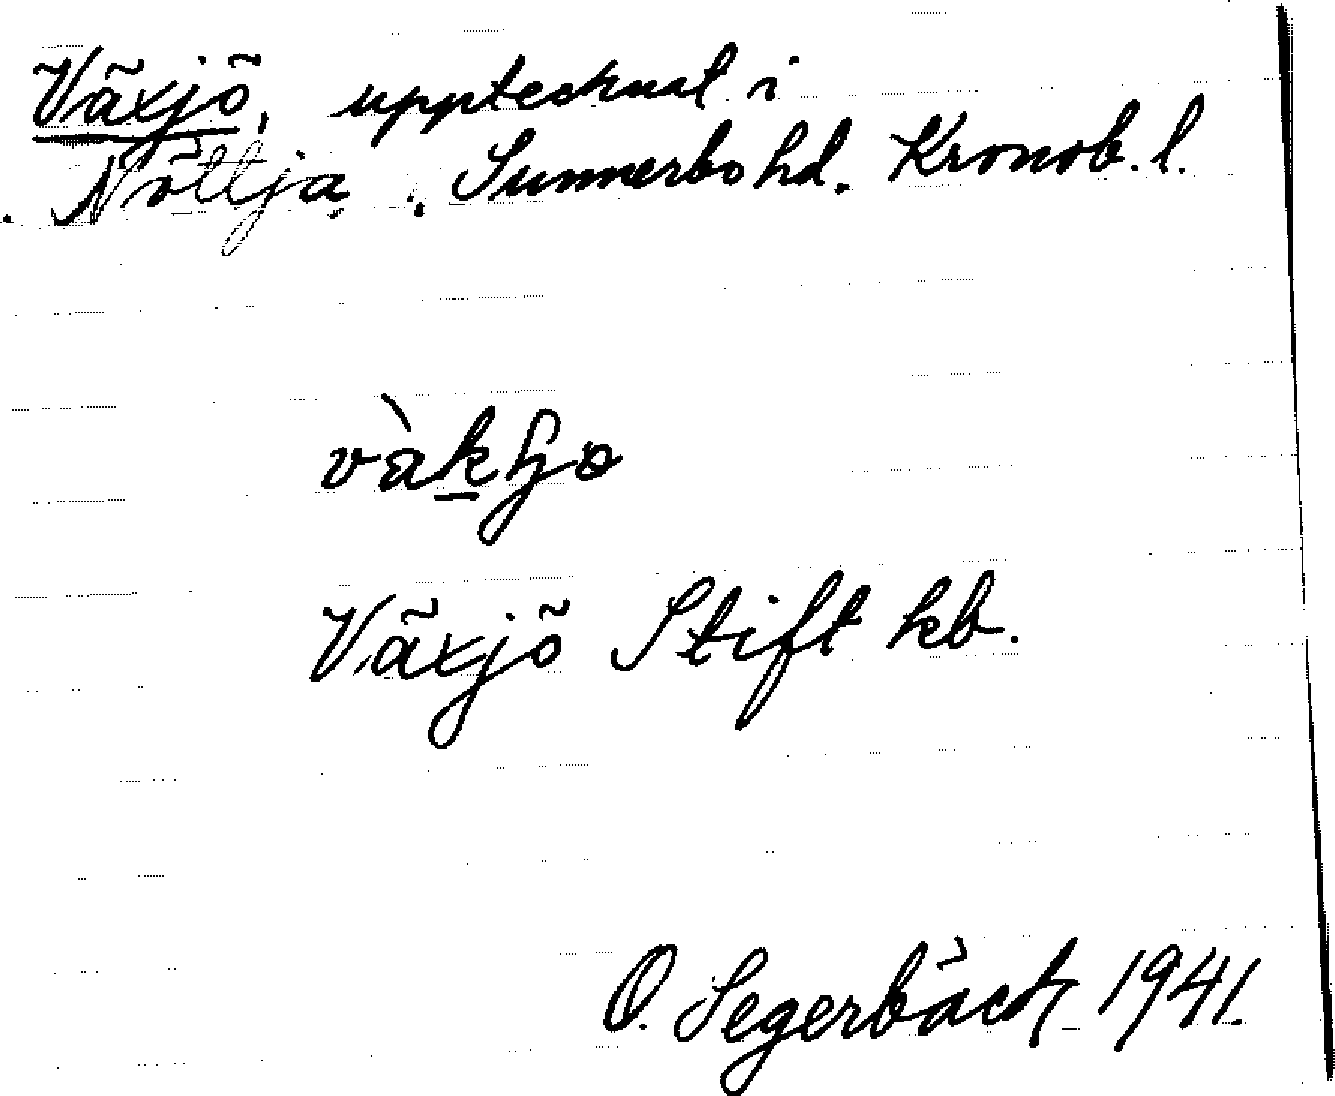 Växjö, upptecknat i
Nöttja, Sunnerbo hd. Kronob. l.
Växjö Stift kb.
O. Segerbäck 1941.